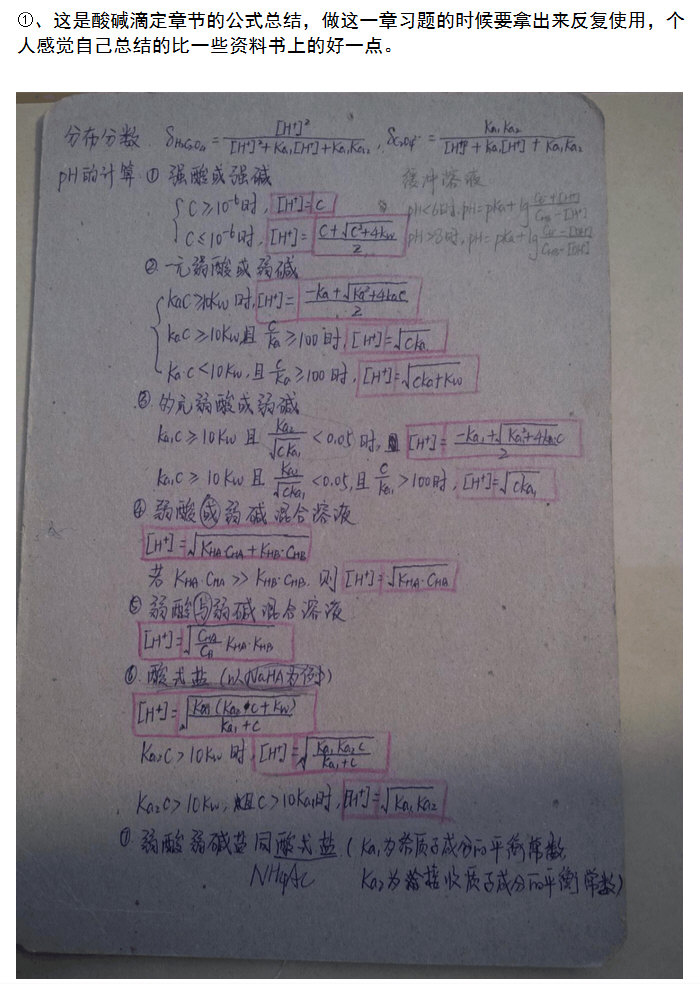 ①、这是酸碱滴定章节的公式总结，做这一章习题的时候要拿出来反复使用，个
人感觉自己总结的比一些资料书上的好一点。
分布分数 δH₂C₂O₄ = [H⁺]² / ([H⁺]² + Ka₁[H⁺] + Ka₁Ka₂), δC₂O₄²⁻ = Ka₁Ka₂ / ([H⁺]² + Ka₁[H⁺] + Ka₁Ka₂)
pH的计算 ① 强酸或强碱 缓冲溶液
C ≥ 10⁻⁶时, [H⁺] = C pH<6时, pH = pKa + lg
C ≤ 10⁻⁶时, [H⁺] = (C + √(C² + 4Kw)) / 2 pH>8时, pH = pKa + lg
② 一元弱酸或弱碱
KaC ≥ 10Kw 时, [H⁺] = (-Ka + √(Ka² + 4KaC)) / 2
KaC ≥ 10Kw, 且 C/Ka ≥ 100时, [H⁺] = √(CKa)
Ka·C < 10Kw, 且 C/Ka ≥ 100时, [H⁺] = √(CKa + Kw)
③ 元弱酸或弱碱
Ka₁C ≥ 10Kw 且 Ka₂/√(CKa₁) < 0.05时, [H⁺] = (-Ka₁ + √(Ka₁² + 4Ka₁C)) / 2
Ka₁C ≥ 10Kw 且 /√(CKa₁) < 0.05, 且 C/Ka₁ > 100时, [H⁺] = √(CKa₁)
④ 弱酸或弱碱混合溶液
[H⁺] = √(KHA·CHA + KHB·CHB)
若 KHA·CHA >> KHB·CHB, 则 [H⁺] = √(KHA·CHA)
⑤ 弱酸与弱碱混合溶液
[H⁺] = √(CHA/CB KHA·KHB)
⑥ 酸式盐 (以NaHA为例)
[H⁺] = √(Ka₁(Ka₂·C + Kw) / (Ka₁ + C))
Ka₂C > 10Kw 时 [H⁺] = √(Ka₁Ka₂C / (Ka₁ + C))
Ka₂C > 10Kw, 且C > 10Ka₁时, [H⁺] = √(Ka₁Ka₂)
⑦ 弱酸弱碱盐同酸式盐 (Ka₁为给质子成分的平衡常数
NH₄Ac Ka₂为接收质子成分的平衡常数)